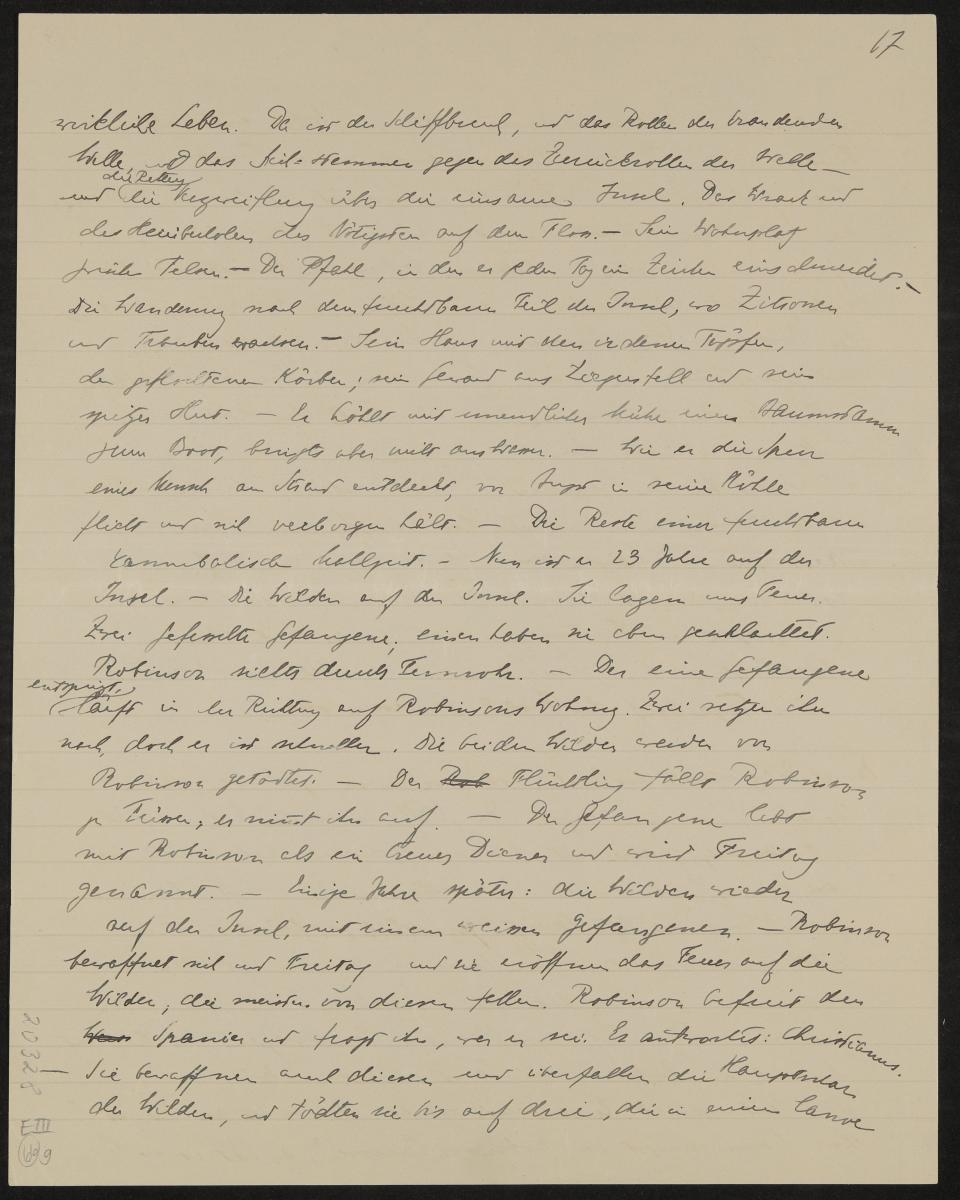 17
wirkliche Leben. Da ist der Schiffbruch, und das Rollen der brandenden
Welle, und das Sich-stemmen gegen das Zurückrollen der Welle —
die Rettung
und die Verzweiflung über die einsame Insel. Das Wrack und
des Herüberholens des Nötigsten auf dem Floss. — Sein Wohnplatz
Felsen. — Der Pfahl, in den er jeden Tag ein Zeichen einschneidet. —
Die Wanderung nach dem fruchtbaren Teil der Insel, wo Zitronen
und Trauben wachsen. — Sein Haus mit den irdenen Töpfen,
den geflochtenen Körben; sein Gewand aus Ziegenfell und sein
spitzer Hut. — Er höhlt mit unendlicher Mühe einen Baumstamm
zum Boot, bringts aber nicht ans Wasser. — Wie er die Spur
eines Mensch am Strand entdeckt, vor Angst in seine Höhle
flieht und sich verborgen hält. — Die Reste einer furchtbaren
kannibalischen Mahlzeit. — Nun ist er 23 Jahre auf der
Insel. — Die Wilden auf der Insel. Sie lagern ums Feuer.
Zwei gefesselte Gefangene; einen haben sie eben geschlachtet.
Robinson siehts durchs Fernrohr. — Der eine Gefangene
entspringt,
läuft in der Richtung auf Robinsons Wohnung. Zwei setzen ihm
nach, doch er ist schneller. Die beiden Wilden werden von
Robinson getödtet. — Der Rob Flüchtling fällt Robinson
zu Füssen; er nimmt ihn auf. — Der Gefangene lebt
mit Robinson als ein treuer Diener und wird Freitag
genannt. — Einige Jahre später: die Wilden wieder
auf der Insel, mit einem weissen Gefangenen. — Robinson
bewaffnet sich und Freitag und sie eröffnen das Feuer auf die
Wilden; die meisten von diesen fallen. Robinson befreit den
Spanier und fragt ihn, wer er sei. Er antwortet: Christianus.
Sie bewaffnen auch diesen und überfallen die Hauptschar
der Wilden, und tödten sie bis auf drei, die in einem Canoe
20328
III